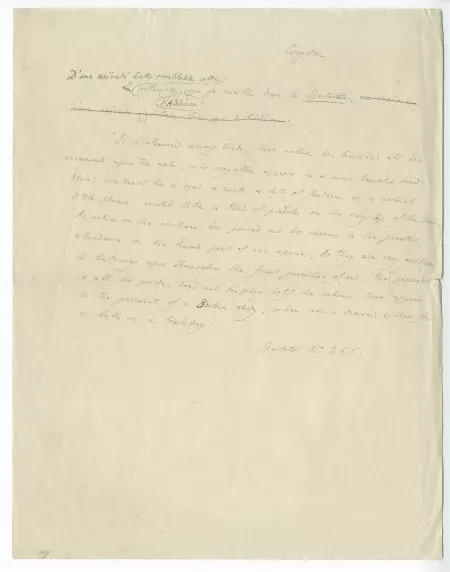 Corydon
D'une naïveté toute semblable cette
que je cueille dans le Spectator.
d'Addison
"It is observed among birds, that nature has lavished all her
ornaments upon the male, who very often appears in a most beautiful head-
dress: whether it be a crest, a comb, a tuft of feathers, or a natural
little plume, erected like a kind of pinacle on the very top of the head.
As nature on the contrary has poured out her charms in the greatest
abundance on the female part of our species, so they are very assiduous
in bestowing upon themselves the finest garnitures of art. The peacock
in all his pride, does not display half the colours that appear
in the garment of a British lady, when she is dressed either for
a ball or a birthday
Spectator N° 265.